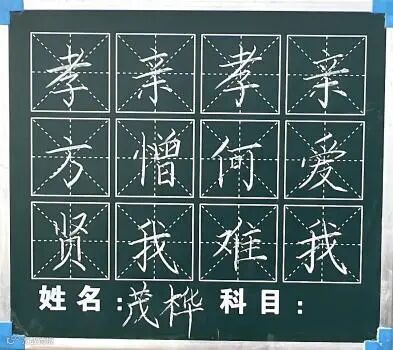 孝亲孝亲
方憎何爱
贤我难我
姓名:茂桦 科目: